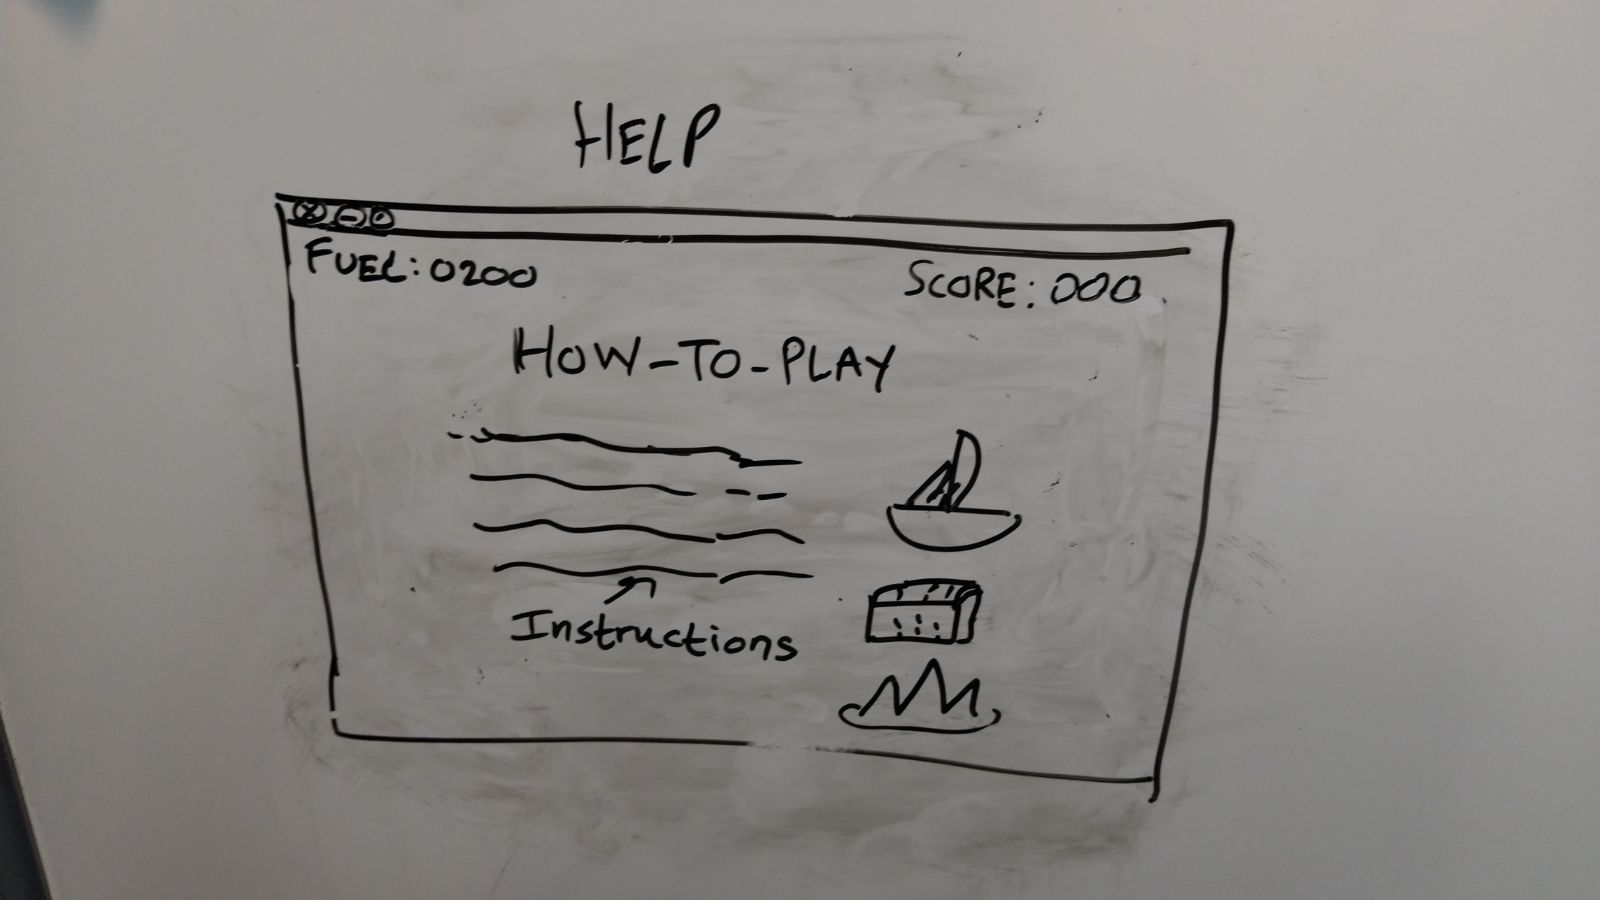 HELP
FUEL: 0200
SCORE: 000
HOW-TO-PLAY
Instructions